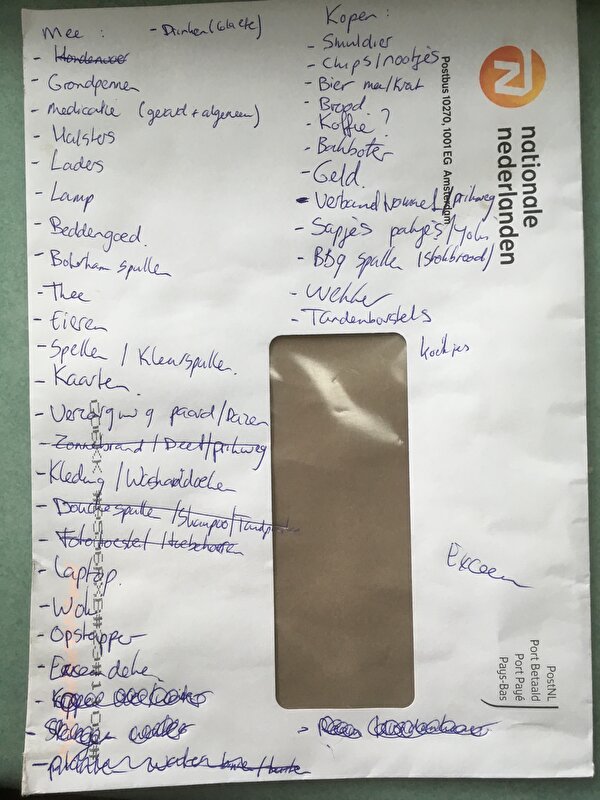 Mee:
- Drinken (Colaetc)
- Grondpennen
- medicatie (gerard + algemeen)
- Halsters
- Laders
- Lamp
- Beddengoed.
- spullen
- Thee
- Eieren
- Spellen / Kleurspullen.
- Kaarten.
- Verzorging paard / Dazen
- Zonnebrand / Deet / prikweg
- Kleding / Washanddoeken
- Douchespullen / Shampoo / Tandpasta
- Fototoestel / toebehoren
- Laptop.
- Wok
- Opstapper
- water
Kopen:
- Smuldier
- Chips / nootjes
- Bier mee / Krat
- Brood
- Koffie?
- Bakboter
- Geld.
- Verbandtrommel / prikweg
- Sapjes pakjes / Yoki
- BBq spullen (stokbrood)
- Wekker
- Tandenborstels
koekjes
nationale
nederlanden
Postbus 10270, 1001 EG Amsterdam
PostNL
Port Betaald
Port Payé
Pays-Bas